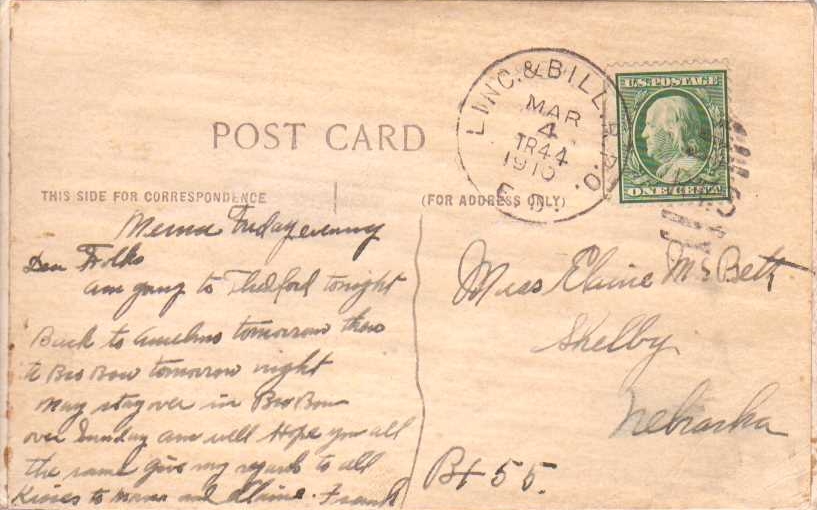 POST CARD
THIS SIDE FOR CORRESPONDENCE
(FOR ADDRESS ONLY)
LINC. & BILL. R.P.O.
MAR
4
TR44
1910
E.D.
U.S. POSTAGE
ONE CENT
Merna Friday evening
Dear Folks
am going to Thedford tonight
Back to Anselmo tomorrow then
to Bro Bow tomorrow night
May stay over in Bro Bow
over Sunday am well Hope you all
the same Give my regards to all
Kisses to Mama and Elaine. Frank
Miss Elaine McBeth
Shelby
Nebraska
Bx 55.